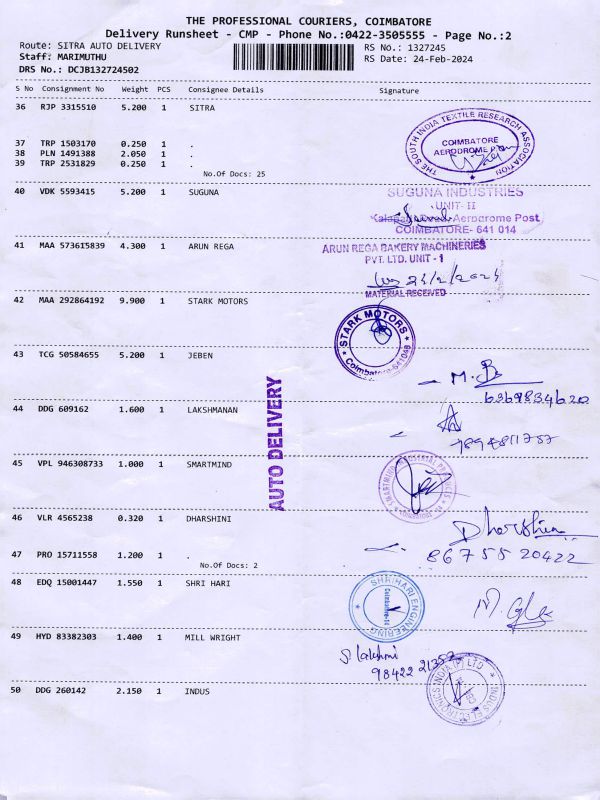 THE PROFESSIONAL COURIERS, COIMBATORE
Delivery Runsheet - CMP - Phone No.:0422-3505555 - Page No.:2
Route: SITRA AUTO DELIVERY
RS No.: 1327245
Staff: MARIMUTHU
RS Date: 24-Feb-2024
DRS No.: DCJB132724502
S No Consignment No Weight PCS Consignee Details Signature
36 RJP 3315510 5.200 1 SITRA
THE SOUTH INDIA TEXTILE RESEARCH ASSOCIATION
COIMBATORE
AERODROME
37 TRP 1503170 0.250 1 .
38 PLN 1491388 2.050 1 .
39 TRP 2531829 0.250 1 .
No.Of Docs: 25
40 VDK 5593415 5.200 1 SUGUNA
SUGUNA INDUSTRIES
UNIT- II
Aerodrome Post,
COIMBATORE- 641 014
41 MAA 573615839 4.300 1 ARUN REGA
ARUN REGA BAKERY MACHINERIES
PVT. LTD. UNIT - 1
MATERIAL RECEIVED
42 MAA 292864192 9.900 1 STARK MOTORS
STARK MOTORS
Coimbatore-641048
43 TCG 50584655 5.200 1 JEBEN
6369834620
AUTO DELIVERY
44 DDG 609162 1.600 1 LAKSHMANAN
9894811757
45 VPL 946308733 1.000 1 SMARTMIND
46 VLR 4565238 0.320 1 DHARSHINI
86755 20422
47 PRO 15711558 1.200 1 .
No.Of Docs: 2
48 EDQ 15001447 1.550 1 SHRI HARI
SHRIHARI ENGINEERING
49 HYD 83382303 1.400 1 MILL WRIGHT
S lakshmi
98422 21352
50 DDG 260142 2.150 1 INDUS
INDUS ELECTRONICS INDIA (P) LTD